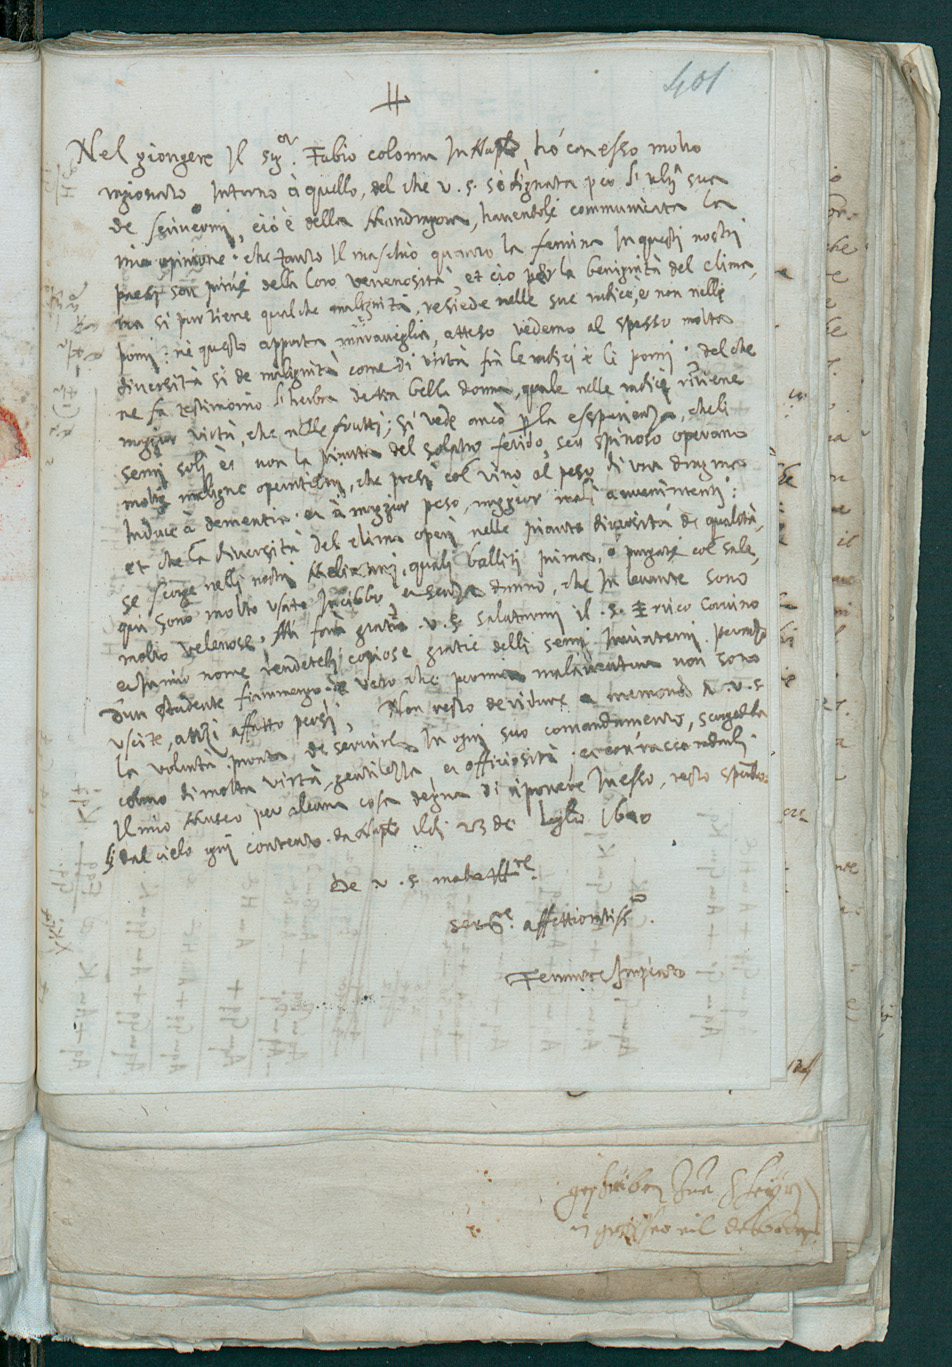 401
Nel giongere Il Sig.or Fabio colonna In Napoli, hó con esso molto
ragionato Intorno à quello, del che v. s. s'è dignata p la sua
de scrivermi, ció è della Mandragora, havendoli communicata la
mia opinione. che tanto Il maschio quanto la femina In questi nostri
paesi son privi della loro venenosità, et ció p la benignità del clima,
ma si pur tiene qualche malignità, resiede nelle sue radice, e non nelli
pomi: nè questo apporta maraveglia, atteso vedemo al spesso molta
diversità si de malignità come di virtù frà le radici è li pomi. del che
ne fa testimonio l'herba detta bella donna, quale nelle radice ritiene
maggior virtù, che nelle frutti; si vede ancó p la essperienza, che li
semi soli et non la pianta del solatro fetido, seu spinoso operano
molte maligne operationi, che presi col vino al peso di una dragma
Induce à dementia. et à maggior peso, maggior mali avenimenti:
et che la diversità del clima operi nelle piante diversità de qualità,
se scorge nelli nostri Melanzani, quali bolliti prima, ò purgati col sale,
qui sono molto usate In cibbo, et senza danno, che In levante sono
molto velenose. Mi farà gratia v. s. salutarmi il s. Errico Corvino
et In mio nome rendeteli copiose gratie delli semi Inviatemi. per
d'un studente fiammengo. è vero che per mia malaventura non sono
uscite, anzi affatto persi. Non resto de vidure e tremondo à v. s.
la voluntà pronta de servirla In ogni suo comandamento, scorgendola
colmo di molta virtù, gentilezza, et officiosità, et con raccomandarli
Il mio Museo per alcuna cosa degna di riponere In esso, resto
dal cielo ogni contento. da Napoli lldi 23 de luglio 16
De v. s. molto
ser.re affettionatiss.o
Ferrante Imperato
geschriben